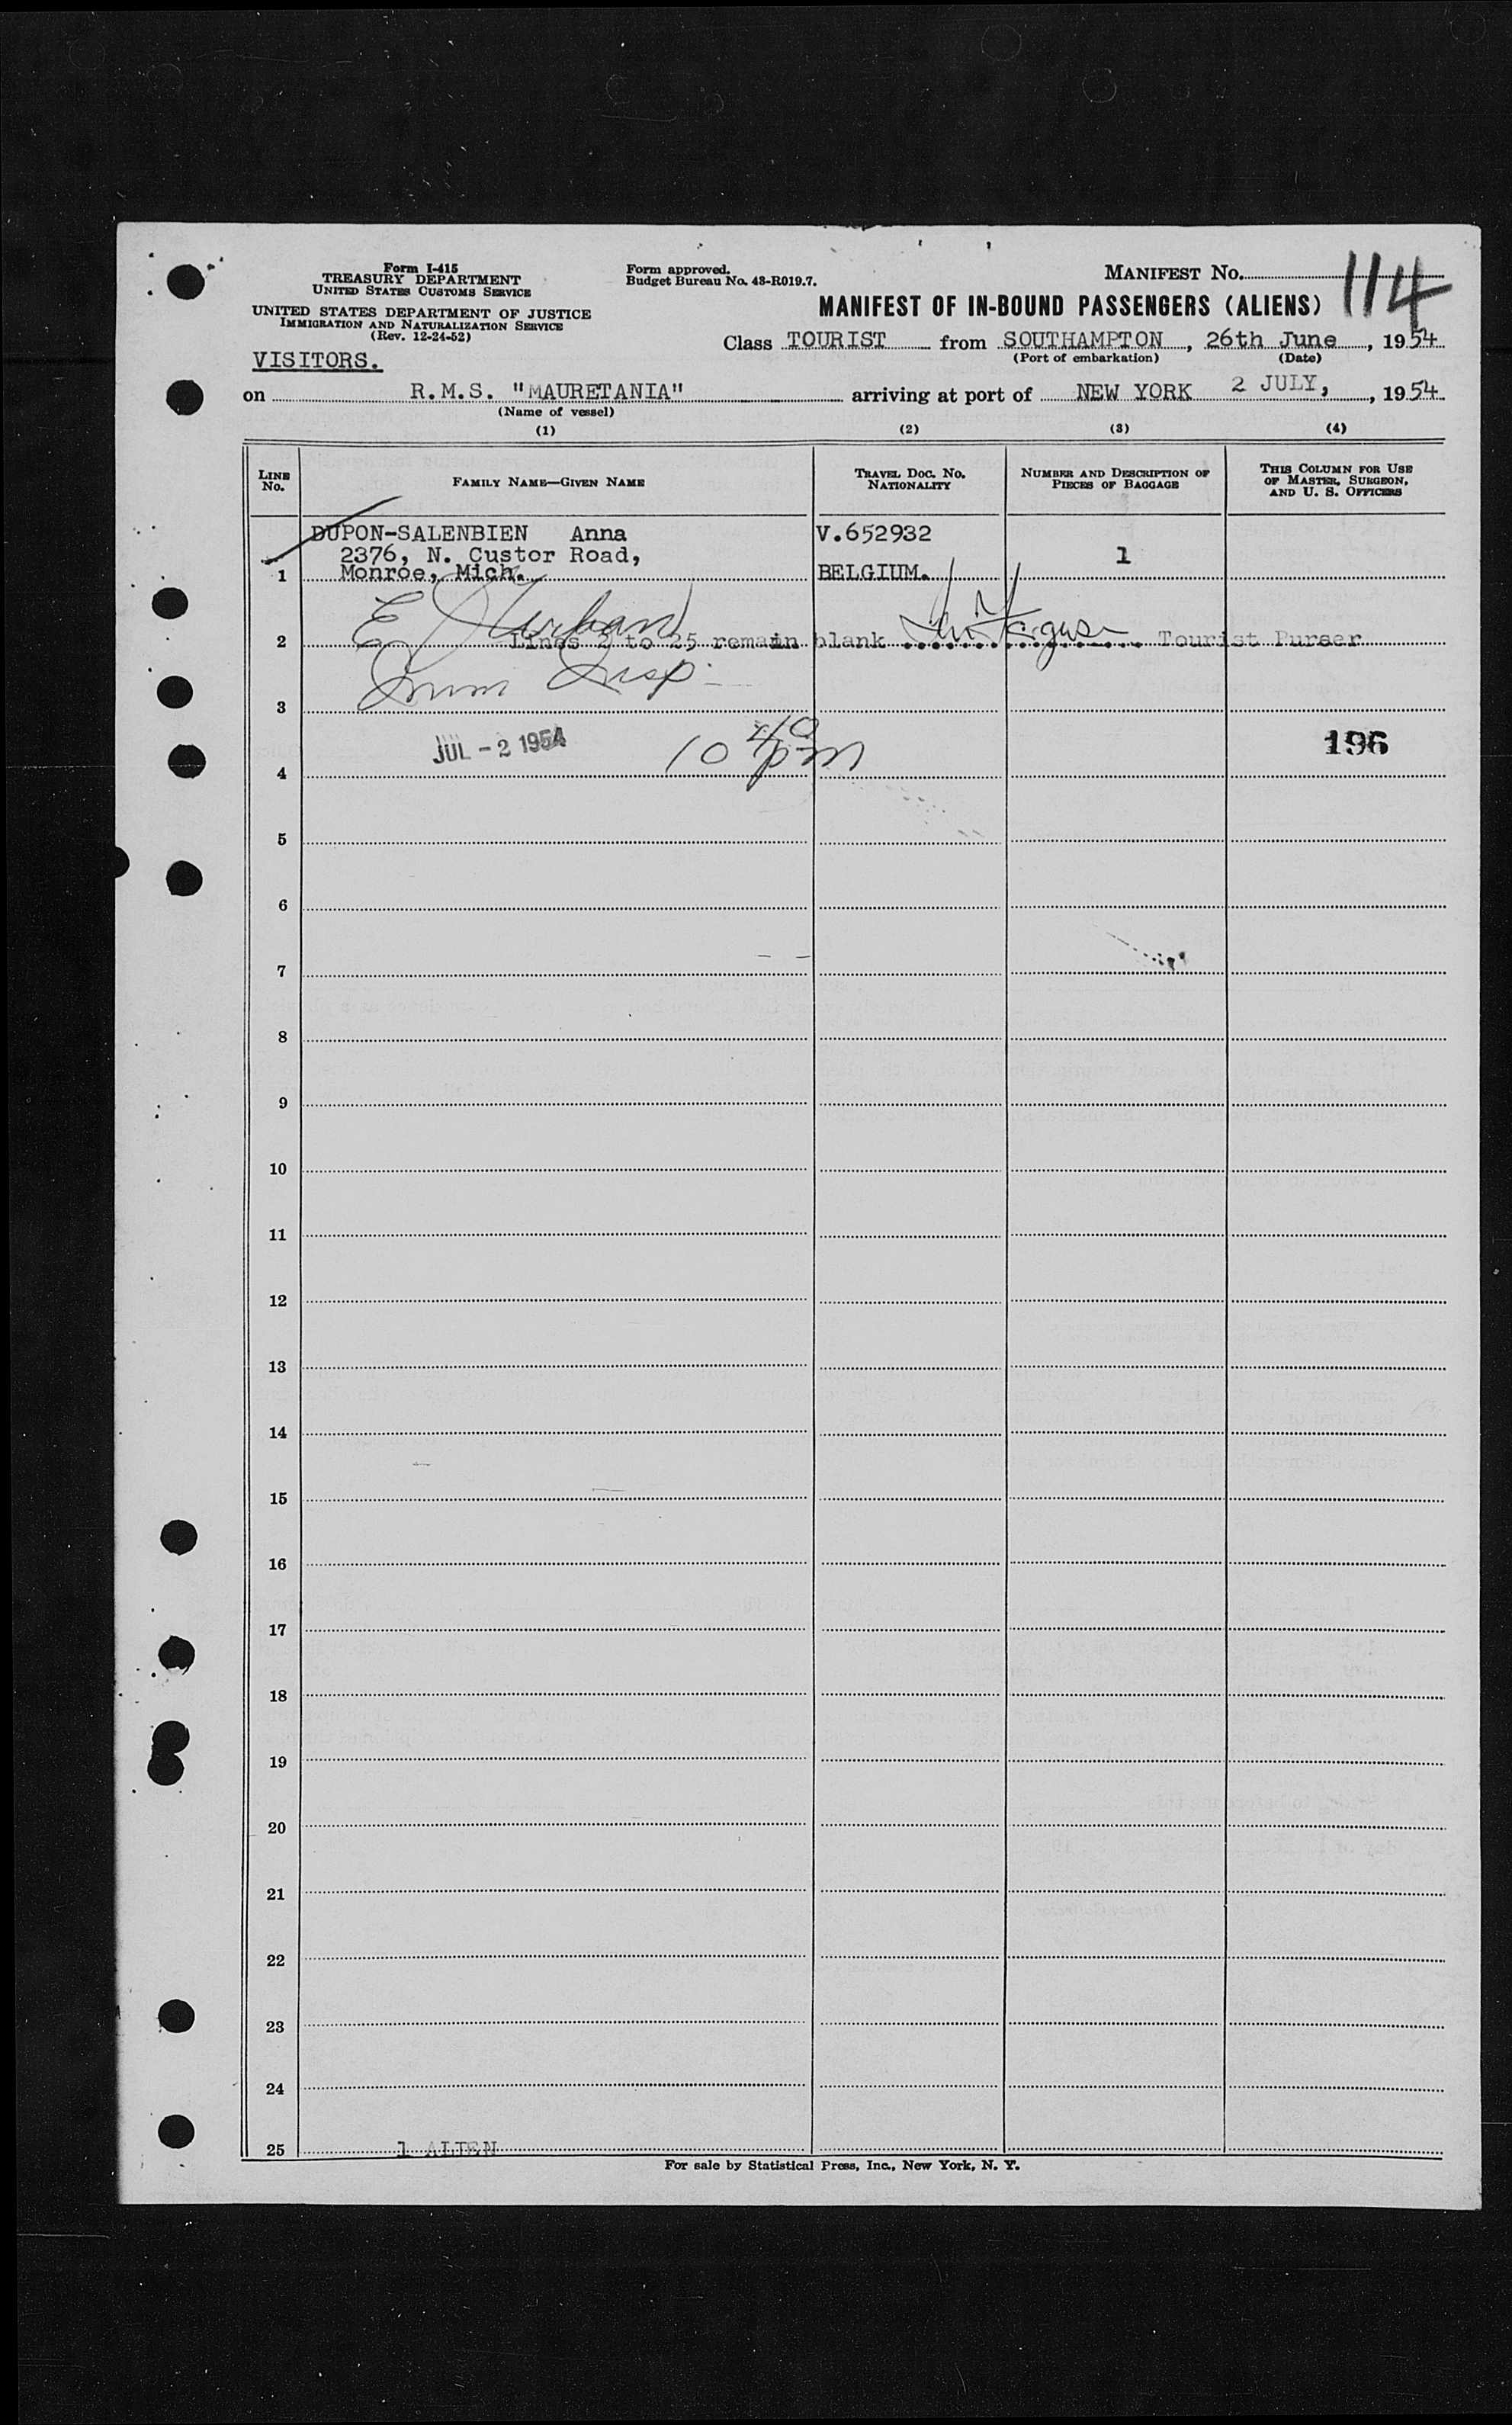 Form I-415
TREASURY DEPARTMENT
UNITED STATES CUSTOMS SERVICE
UNITED STATES DEPARTMENT OF JUSTICE
IMMIGRATION AND NATURALIZATION SERVICE
(Rev. 12-24-52)
Form approved.
Budget Bureau No. 43-R019.7.
MANIFEST NO. 114
MANIFEST OF IN-BOUND PASSENGERS (ALIENS)
VISITORS.
Class TOURIST from SOUTHAMPTON, 26th June, 1954
(Port of embarkation) (Date)
on R.M.S. "MAURETANIA" arriving at port of NEW YORK 2 JULY, , 1954
(Name of vessel)
(1) (2) (3) (4)
LINE NO.
FAMILY NAME—GIVEN NAME
TRAVEL DOC. NO. NATIONALITY
NUMBER AND DESCRIPTION OF PIECES OF BAGGAGE
THIS COLUMN FOR USE OF MASTER, SURGEON, AND U. S. OFFICERS
DUPON-SALENBIEN Anna V.652932
2376, N. Custor Road, 1
1 Monroe, Mich. BELGIUM.
2 Lines 2 to 25 remain blank Tourist Purser
Imm Insp.
3
JUL - 2 1954 10 40 pm 196
4
5
6
7
8
9
10
11
12
13
14
15
16
17
18
19
20
21
22
23
24
25 1 ALIEN
For sale by Statistical Press, Inc., New York, N. Y.